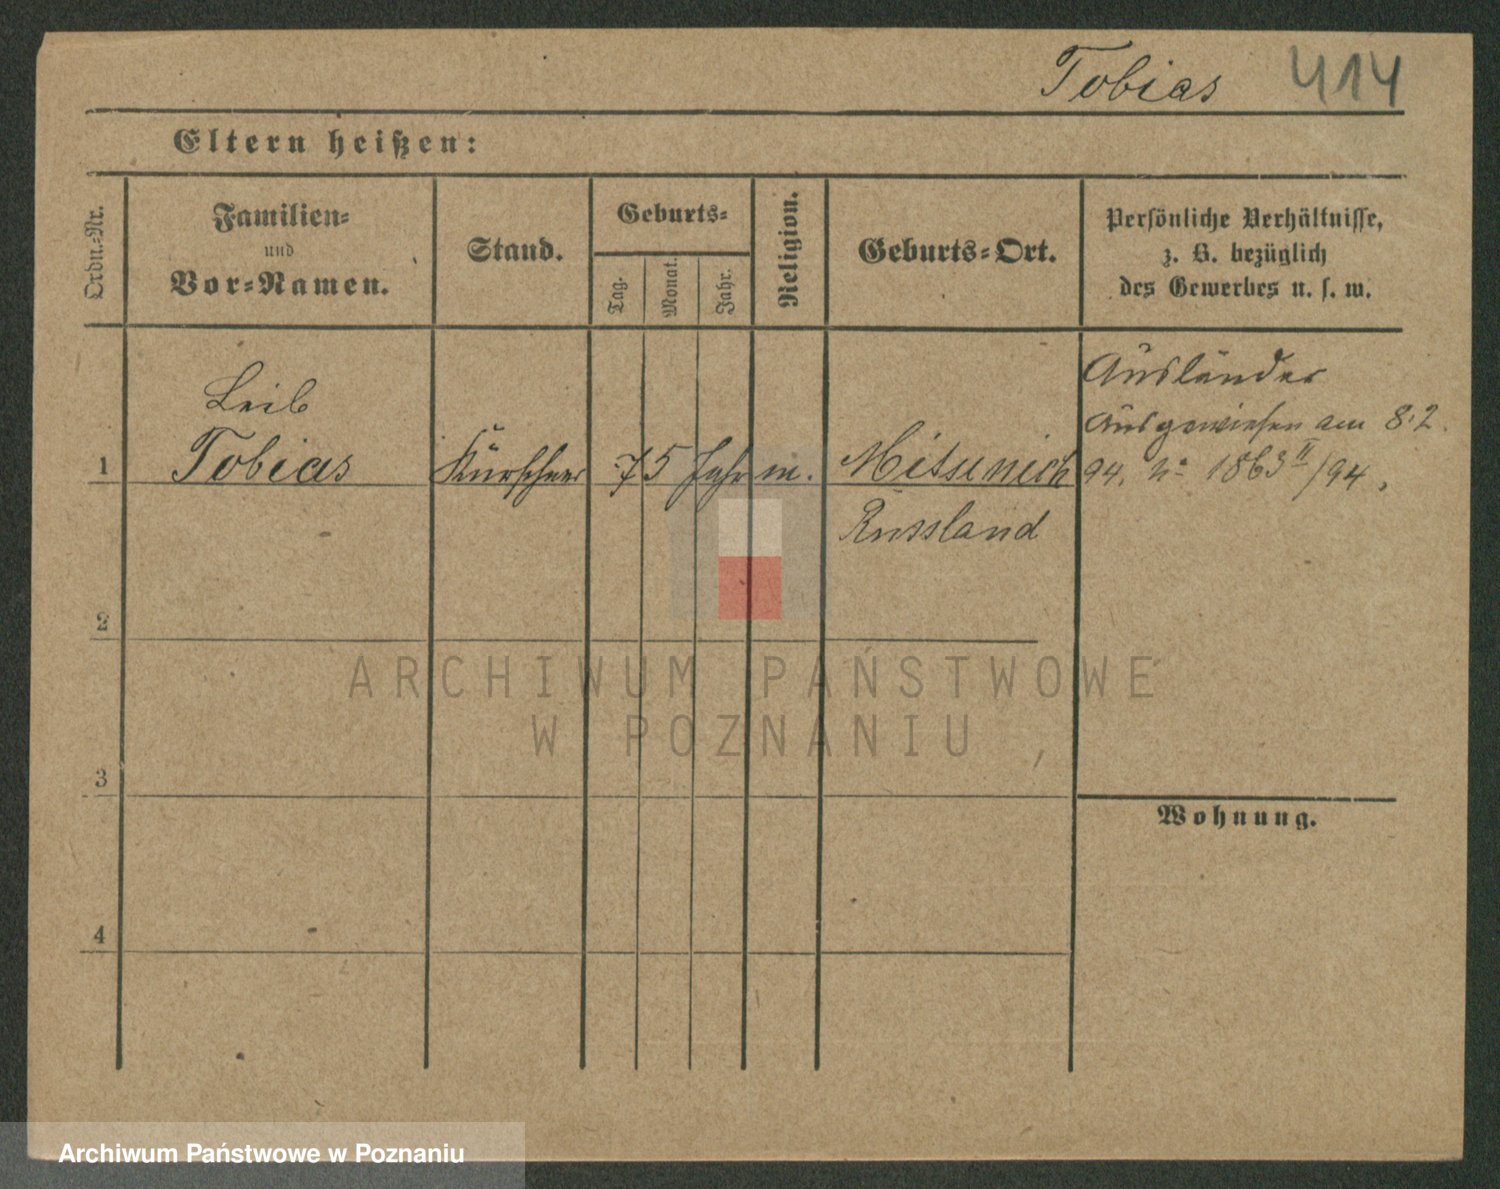 Tobias 414
Eltern heißen:
Ordn.-Nr.
Familien-
und
Vor-Namen.
Stand.
Geburts-
Tag.
Monat.
Jahr.
Religion.
Geburts-Ort.
Persönliche Verhältnisse,
z. B. bezüglich
des Gewerbes u. s. w.
Leib
1 Tobias Kürschner 75 Jahr m. Mitsunich
Russland
Ausländer
Ausgewiesen am 8.2.
94. No 1863 II/94.
2
3
4
Wohnung.
ARCHIWUM PAŃSTWOWE
W POZNANIU
Archiwum Państwowe w Poznaniu